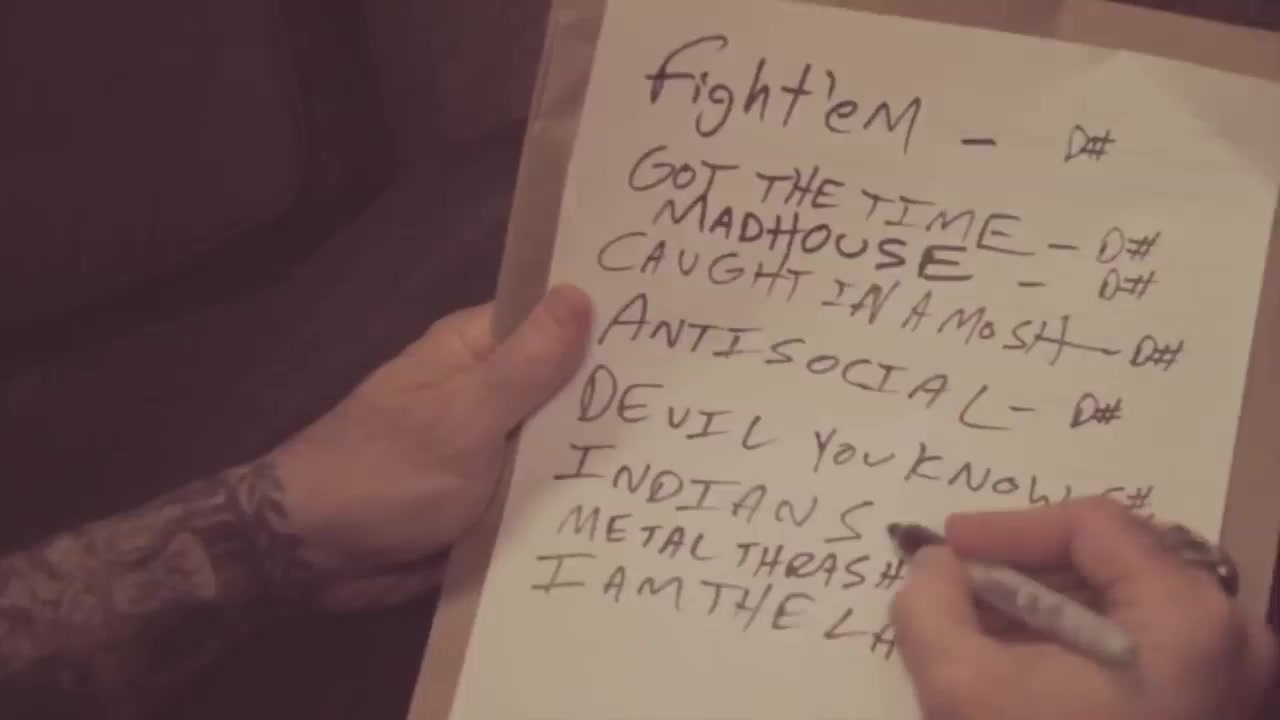 fight'em - D#
GOT THE TIME - D#
MADHOUSE - D#
CAUGHT IN A MOSH - D#
ANTISOCIAL - D#
DEVIL YOU KNOW
INDIANS
METAL THRASH
I AM THE LA